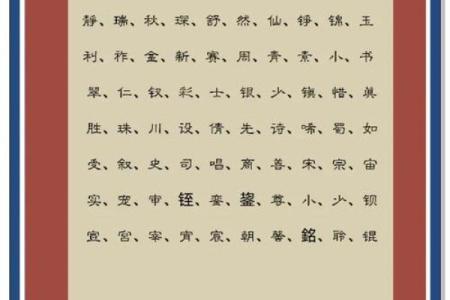 靜、瑞、秋、琛、舒、然、仙、铮、锦、玉
利、祚、金、新、赛、周、青、素、小、书
翠、仁、钗、彩、士、银、少、镇、惜、真
胜、珠、川、设、倩、先、诗、唏、蜀、如
受、叙、史、司、唱、商、善、宋、宗、宙
实、宠、审、铚、銮、鋆、尊、小、少、钡
宣、宫、宰、宵、宸、朝、馨、銘、聆、锟